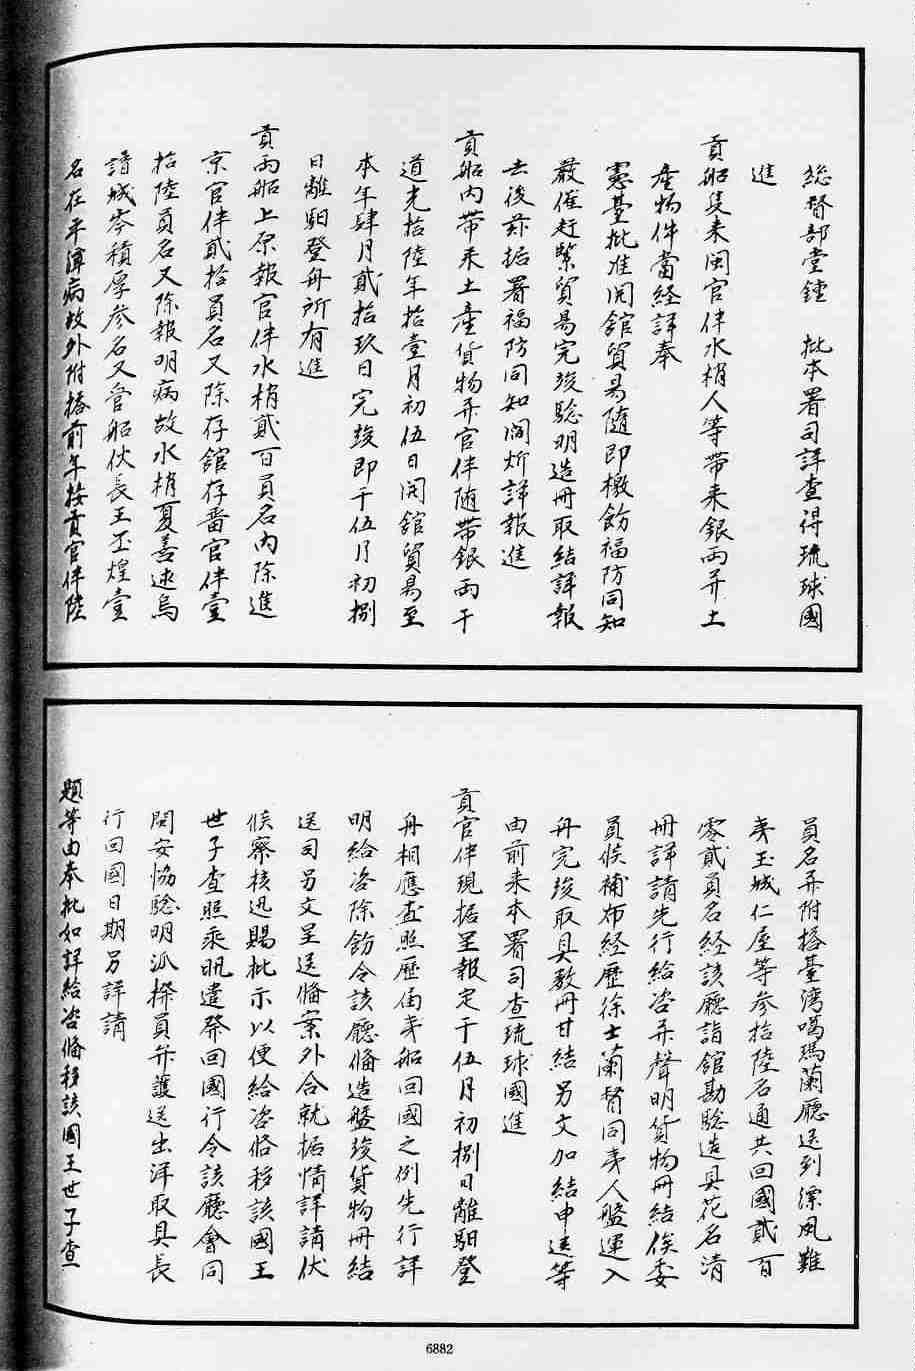 總督部堂鍾　批本署司詳查得琉球國
進
貢船隻來閩官伴水梢人等帶來銀兩并土
產物件當經詳奉
憲臺批准開館貿易隨即檄飭福防同知
嚴催赶緊貿易完竣驗明造冊取結詳報
去後茲据署福防同知闊炘詳報進
貢船內帶來土產貨物并官伴随帶銀兩于
道光拾陸年拾壹月初伍日開館貿易至
本年肆月貳拾玖日完竣即于伍月初捌
日離驛登舟所有進
貢兩船上原報官伴水梢貳百員名內除進
京官伴貳拾員名又除存館存番官伴壹
拾陸員名又除報明病故水梢夏善述烏
譜城岑積厚參名又管船伙長王丕煌壹
名在平潭病故外附搭前年接貢官伴陸
員名并附搭臺灣噶瑪蘭廳送到漂風難
夷玉城仁屋等參拾陸名通共回國貳百
零貳員名經該廳詣館勘驗造具花名清
冊詳請先行給咨并聲明貨物冊結俟委
員候補布經歷徐士蘭督同夷人盤運入
舟完竣取具數冊甘結另文加結申送等
由前來本署司查琉球國進
貢官伴現据呈報定于伍月初捌日離驛登
舟相應查照歷屆夷船回國之例先行詳
明給咨除飭令該廳俻造盤竣貨物冊結
送司另文呈送俻案外合就据情詳請伏
候察核迅賜批示以便給咨俻移該國王
世子查照乘汛遣發回國行令該廳會同
閩安協驗明派撥員弁護送出洋取具長
行回國日期另詳請
題等由奉批如詳給咨俻移該國王世子查
6882